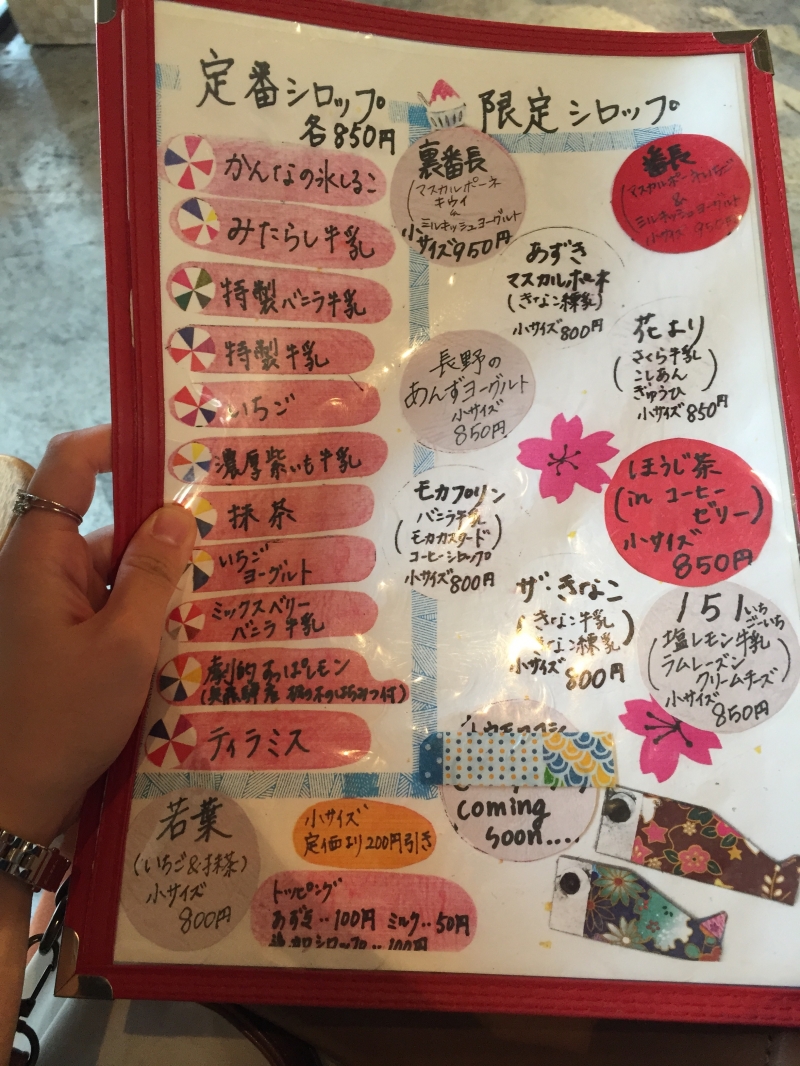 定番シロップ
各850円
かんなの氷しるこ
みたらし牛乳
特製バニラ牛乳
特製牛乳
いちご
濃厚紫いも牛乳
抹茶
いちご
ヨーグルト
ミックスベリー
バニラ牛乳
劇的すっぱレモン
ティラミス
限定シロップ
裏番長
マスカルポーネ
キウイ
&
ミルキッシュヨーグルト
小サイズ950円
番長
マスカルポーネいちご
&
ミルキッシュヨーグルト
小サイズ950円
あずき
マスカルポーネ
(きなこ練乳)
小サイズ800円
花より
(さくら牛乳
こしあん
ぎゅうひ)
小サイズ850円
長野の
あんずヨーグルト
小サイズ
850円
ほうじ茶
(in コーヒー
ゼリー)
小サイズ
850円
モカフロリン
(バニラ牛乳
モカカスタード
コーヒーシロップ)
小サイズ800円
ザ・きなこ
(きなこ牛乳
きなこ練乳)
小サイズ
800円
151いち
ごーいち
(塩レモン牛乳
ラムレーズン
クリームチーズ)
小サイズ
850円
coming
soon....
若葉
(いちご&抹茶)
小サイズ
800円
小サイズ
定価より200円引き
トッピング
あずき‥100円 ミルク‥50円
追加シロップ‥100円